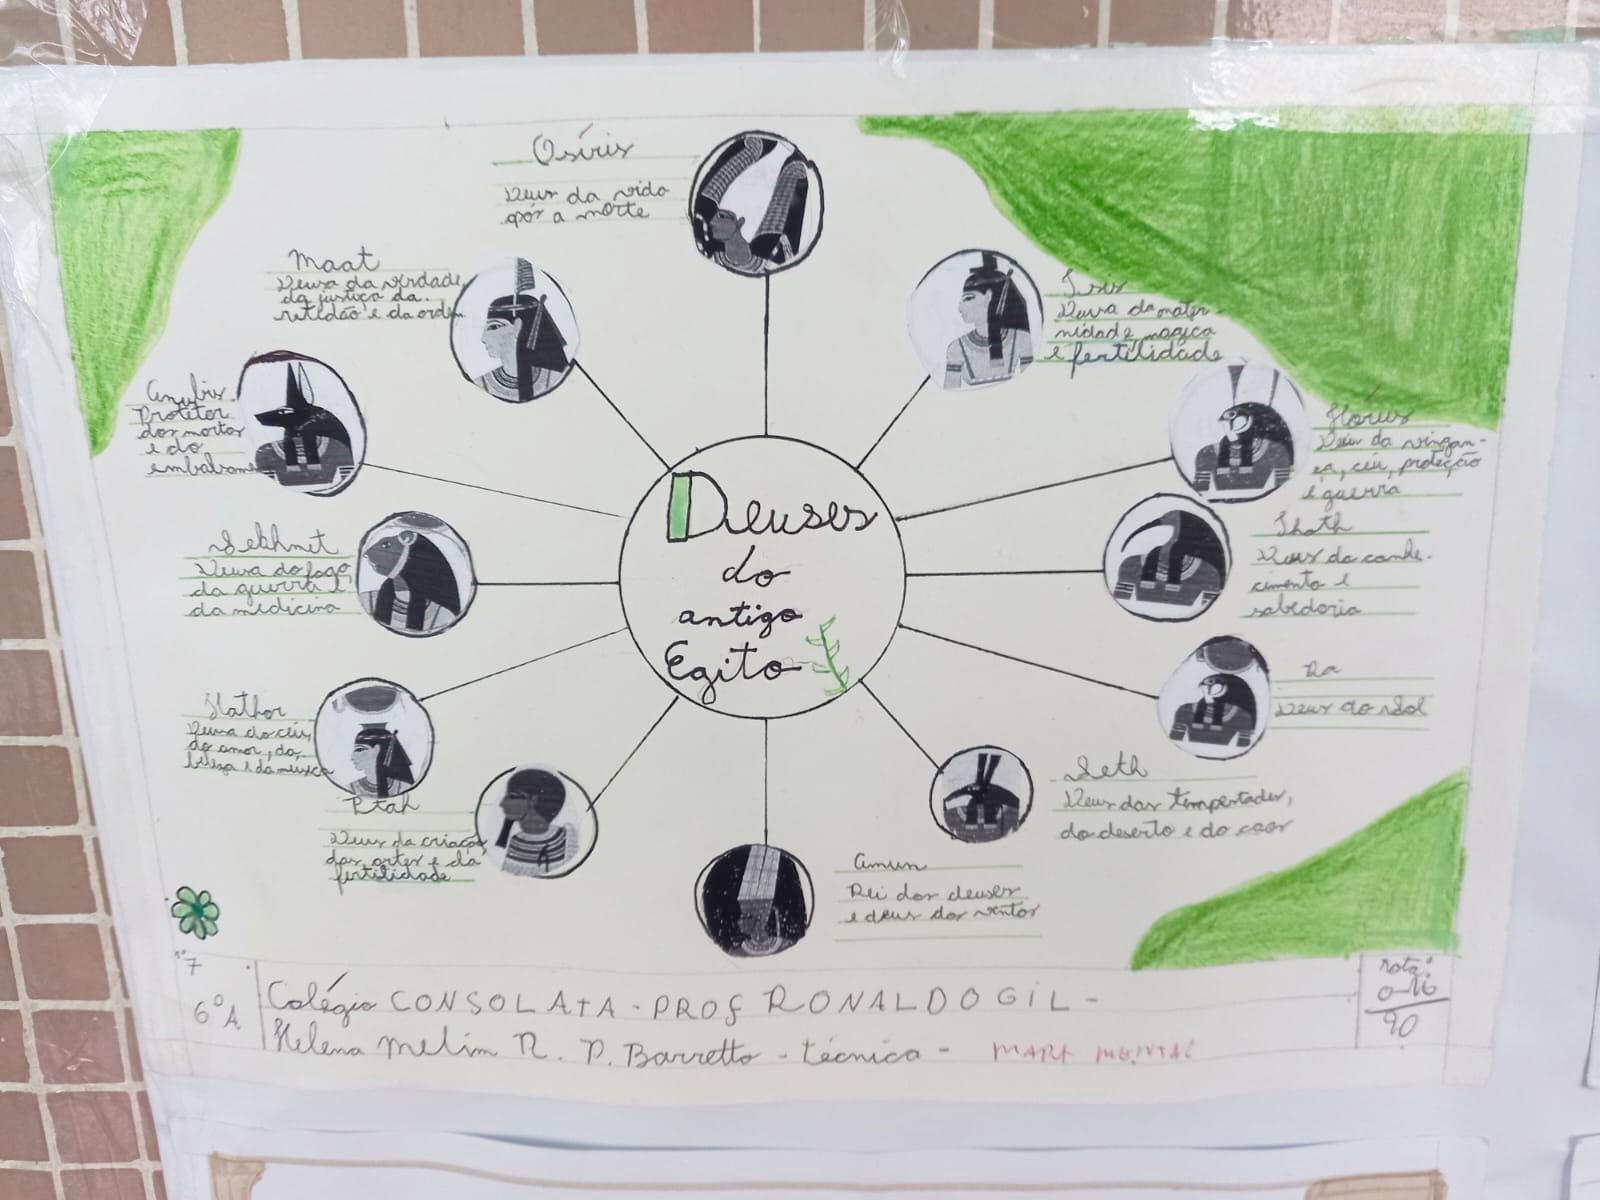 Osíris
Deus da vida
após a morte
Maat
Deusa da verdade,
da justiça da
retidão e da ordem
Isis
Deusa da mater-
nidade, magica
e fertilidade
Anubis
Protetor
dos mortos
e do
embalsame
Hórus
Deus da vingan-
ça, céu, proteção
e guerra
Sekhmet
Deusa do fogo,
da guerra e
da medicina
Deuses
do
antigo
Egito
Thoth
Deus do conhe-
cimento e
sabedoria
Ra
Deus do Sol
Hathor
Deusa do céu,
do amor, da
beleza e da música
Ptah
Deus da criação,
das artes e da
fertilidade
Seth
Deus das tempestades,
do deserto e do caos
Amun
Rei dos deuses
e deus dos ventos
nº 7
6º A
Colégio CONSOLATA - PROF RONALDO GIL -
Helena Melim R. P. Barretto - técnica - MAPA MENTAL
nota:
90